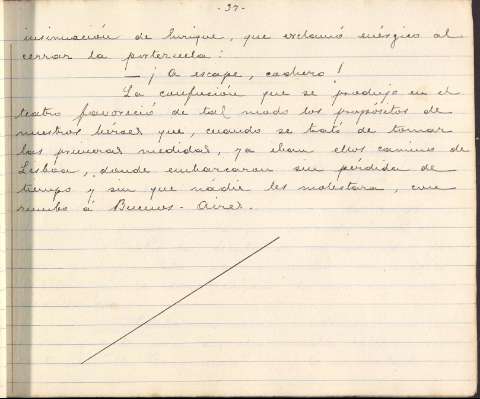 - 37 -
insinuación de Enrique, que exclamó enérgico al
cerrar la portezuela:
— ¡A escape, cochero!
La confusión que se produjo en el
teatro favoreció de tal modo los propósitos de
nuestros héroes que, cuando se trató de tomar
las primeras medidas, ya iban ellos camino de
Lisboa, donde embarcaron sin pérdida de
tiempo y sin que nádie les molestara, con
rumbo á Buenos-Aires.